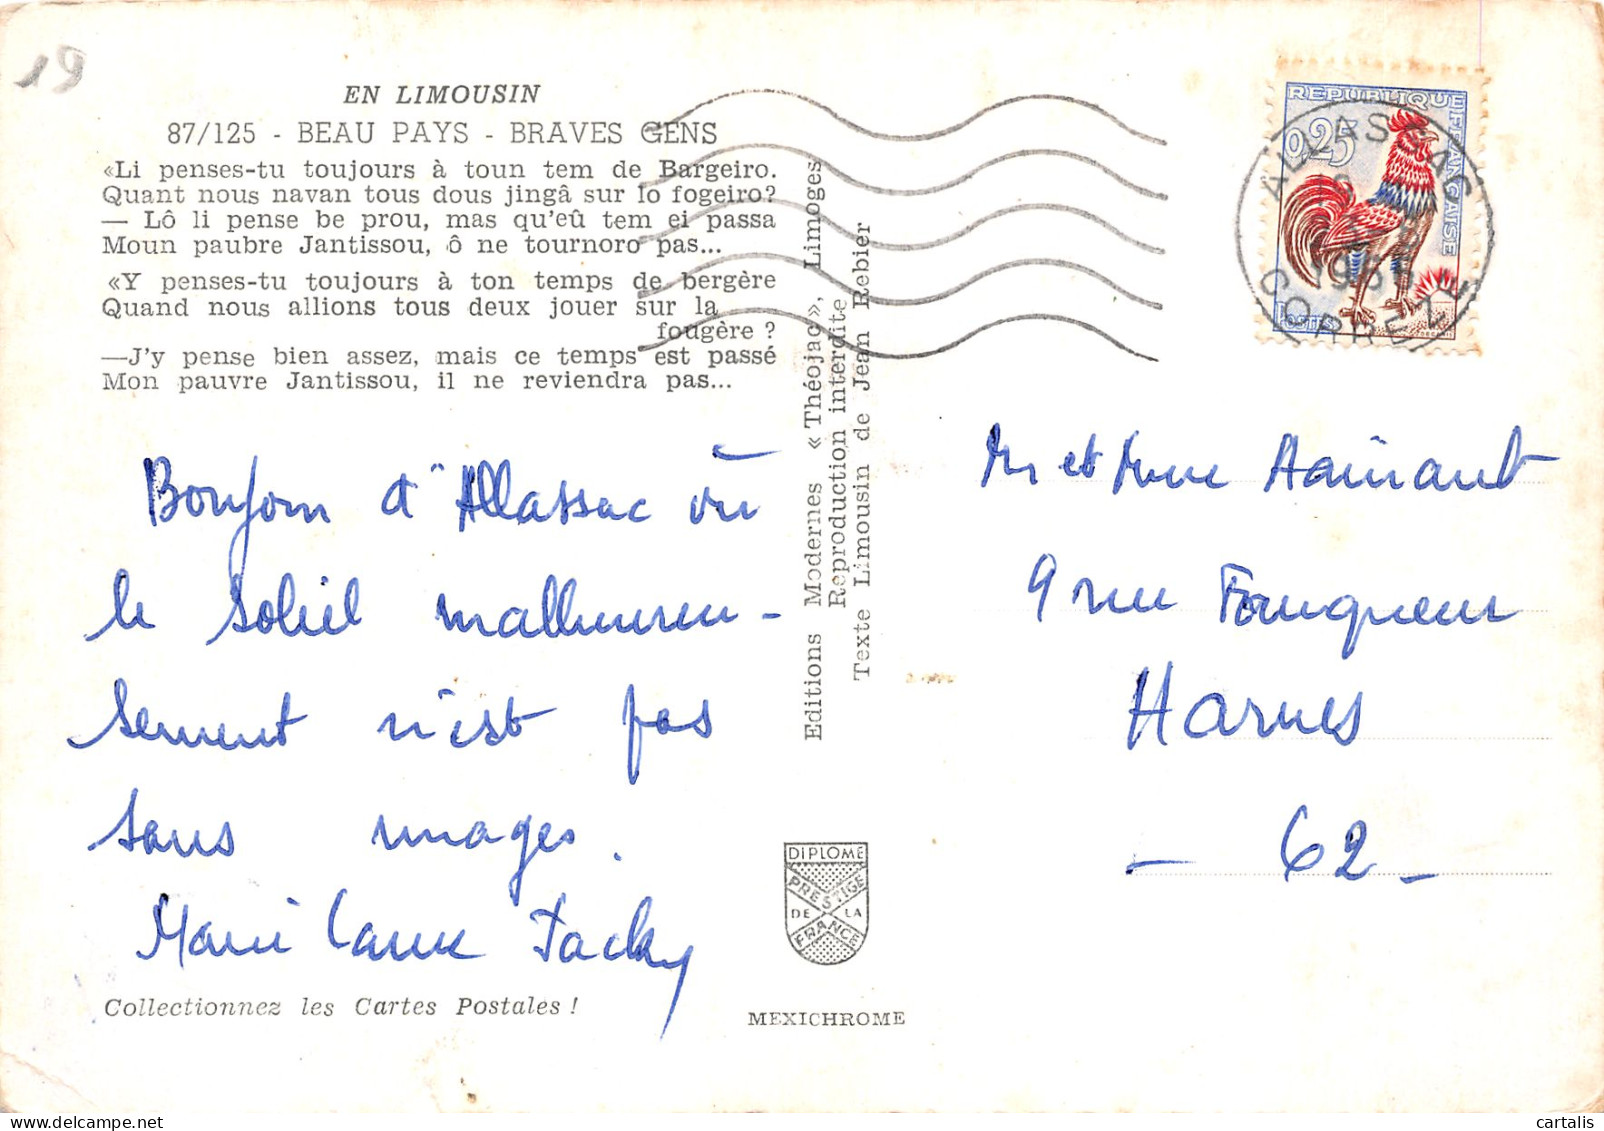 19
EN LIMOUSIN
87/125 - BEAU PAYS - BRAVES GENS
«Li penses-tu toujours à toun tem de Bargeiro.
Quant nous navan tous dous jingâ sur lo fogeiro?
— Lô li pense be prou, mas qu'eû tem ei passa
Moun paubre Jantissou, ô ne tournoro pas...
«Y penses-tu toujours à ton temps de bergère
Quand nous allions tous deux jouer sur la
fougère ?
—J'y pense bien assez, mais ce temps est passé
Mon pauvre Jantissou, il ne reviendra pas...
Bonjour d'Allassac où
le soleil malheureu-
sement n'est pas
sans nuages.
Marie Jacky
Collectionnez les Cartes Postales !
Editions Modernes «Théojac», Limoges
Reproduction interdite
Texte Limousin de Jean Rebier
DIPLOME
PRESTIGE
DE LA
FRANCE
MEXICHROME
REPUBLIQUE FRANÇAISE
0,25
POSTES
ALLASSAC
CORREZE
Mr et Mme
9 rue Fouqueur
Harnes
- 62 -
cartalis
delcampe.net